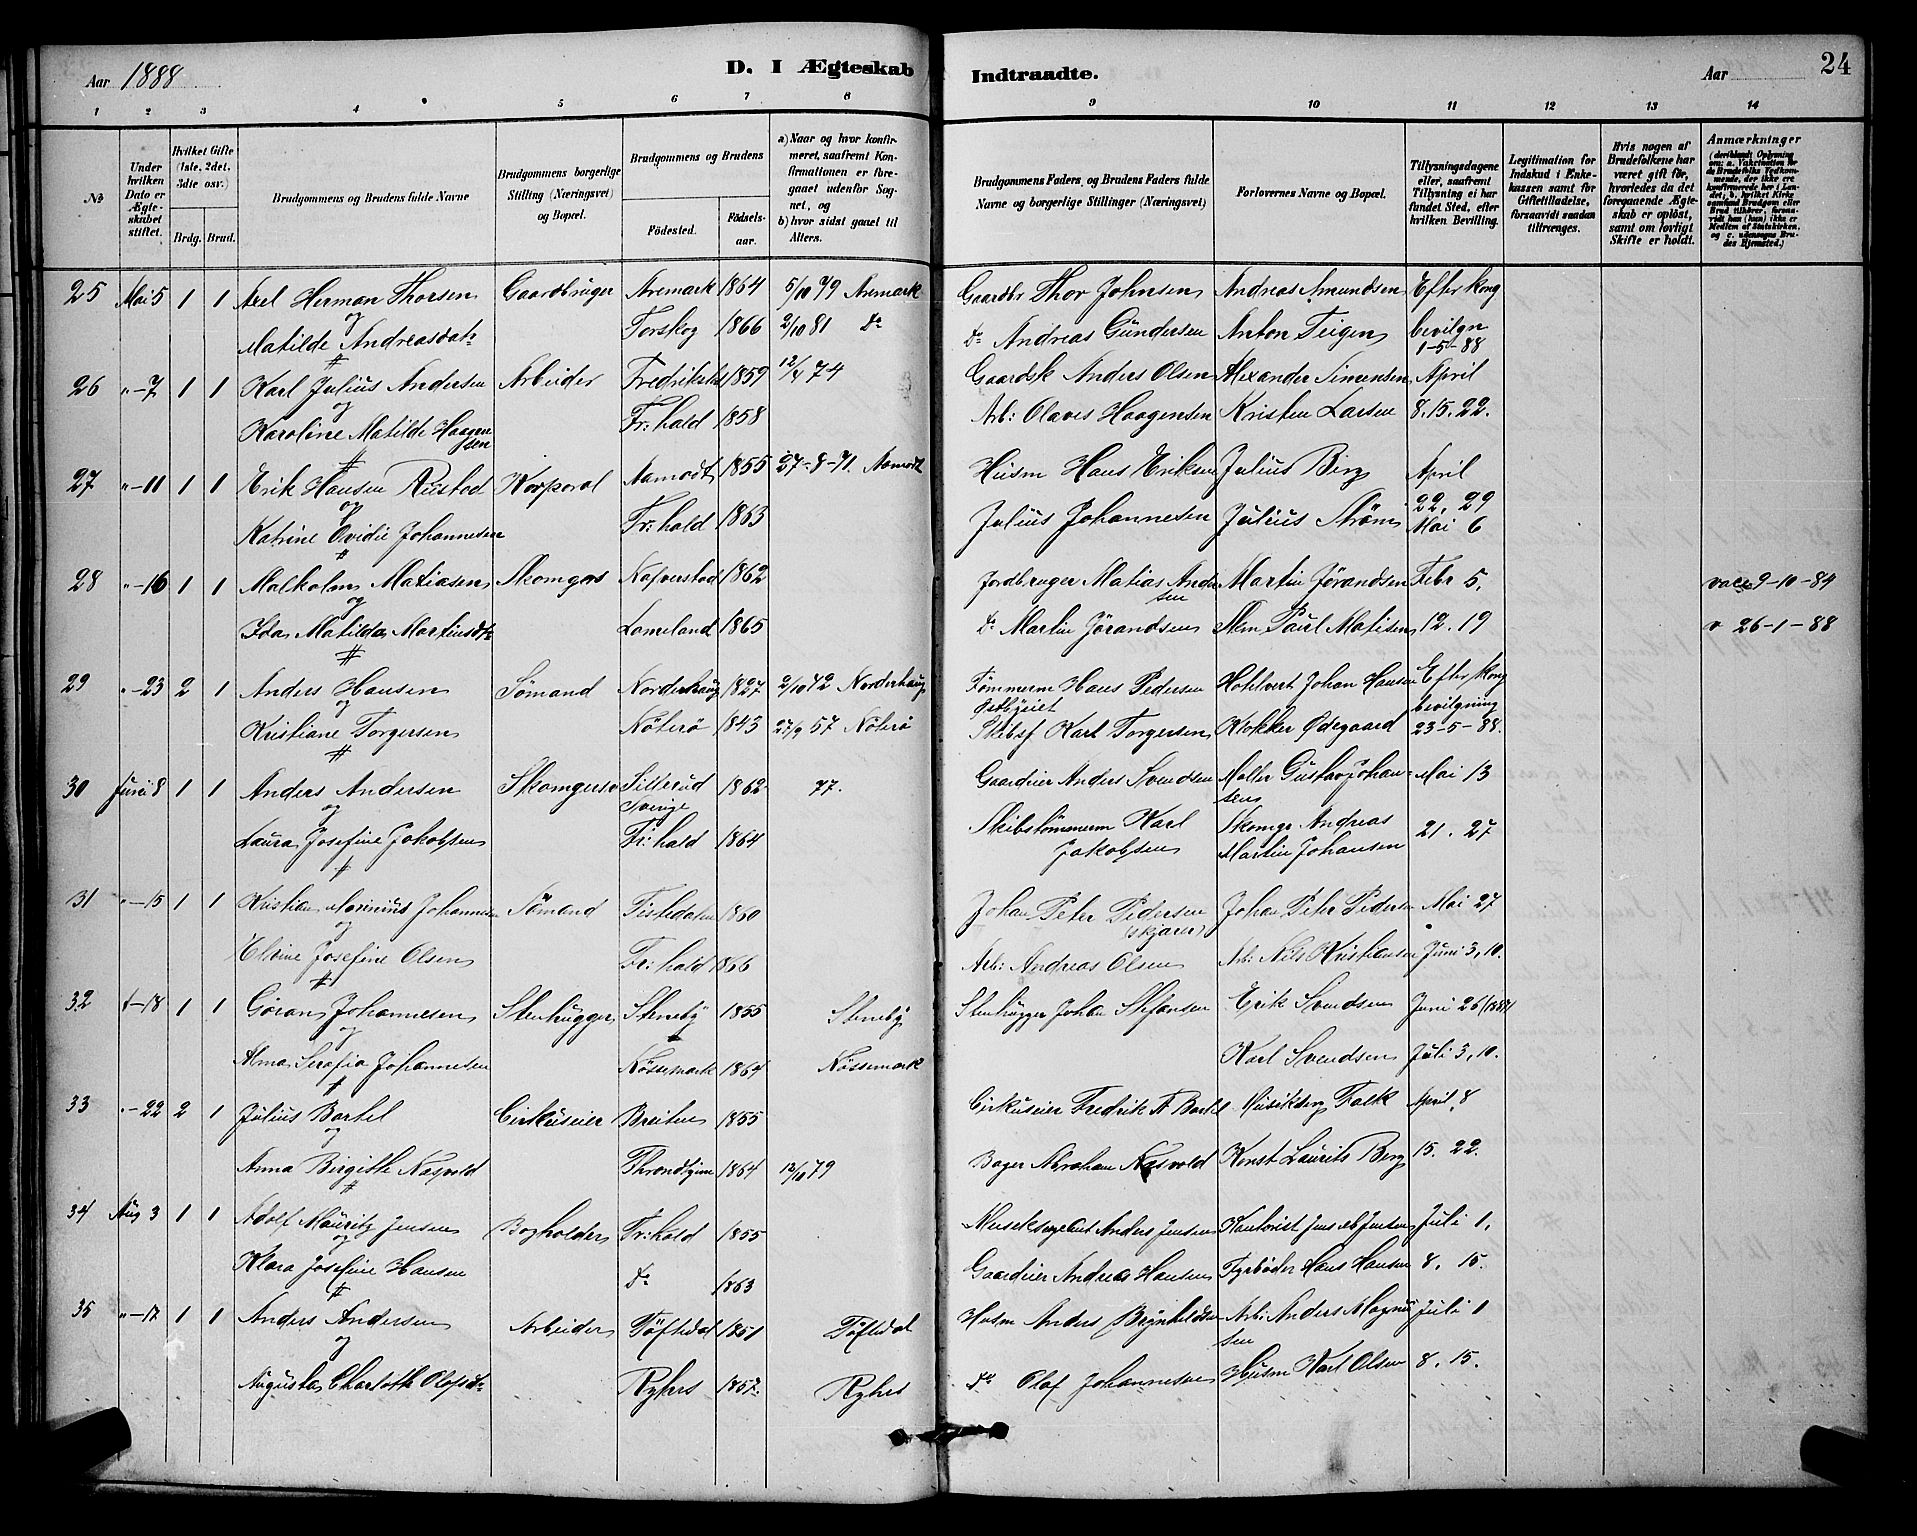 Aar 1888 D. I Ægteskab Indtraadte. Aar 24
1 2 3 4 5 6 7 8 9 10 11 12 13 14
No
Under hvilken Dato er Ægteskabet stiftet.
Hvilket Gifte (1ste, 2det, 3die osv.)
Brdg. Brud.
Brudgommens og Brudens fulde Navne
Brudgommens borgerlige Stilling (Næringsvei) og Bopæl.
Brudgommens og Brudens
Fødested. Fødselsaar.
a) Naar og hvor konfirmeret, saafremt Konfirmationen er foregaaet udenfor Sognet, og
b) hvor sidst gaaet til Alters.
Brudgommens Faders og Brudens Faders fulde Navne og borgerlige Stillinger (Næringsvei)
Forlovernes Navne og Bopæl.
Tillysningsdagene eller, saafremt Tillysning ei har fundet Sted, efter hvilken Bevilling.
Legitimation for Indskud i Enkekassen samt for Giftetilladelse, forsaavidt saadan tiltrænges.
Hvis nogen af Brudefolkene har været gift før, hvorledes da det foregaaende Ægteskab er opløst, samt om lovligt Skifte er holdt.
Anmærkninger
25 Mai 5 1 1 Axel Herman Thorsen Gaardbruger Aremark 1864 5/10 79 Aremark Gaardbr Thor Johnsen Andreas Amundsen Efter kong
og
Matilde Andreasdatr Torskog 1866 2/10 81 Do Do Andreas Gundersen Anton Teigen bevilgn
1-5-88
26 "-7 1 1 Karl Julius Andersen Arbeider Fredrikshld 1859 12/4 74 Gaardsk Anders Olsen Alexander Simensen April
og
Karoline Matilde Haagensen Fr:hald 1858 Arb: Olaves Haagensen Kristen Larsen 8. 15. 22.
27 "-11 1 1 Erik Hansen Rustad Korporal Aamodt 1855 27-8-71. Aamodt Husm Hans Eriksen Julius Berg April
og 22, 29
Katrine Ovidie Johannesen Fr:hald 1863 Julius Johannesen Julius Strøm Mai 6
28 "-16 1 1 Malkolm Matiasen Skomgers Nafverstad 1862 Jordbruger Matias Andersen Martin Jørandsen Febr 5, vacc 9-10-84
og
Ida Matilda Martinsdtr Lameland 1865 Do Martin Jørandsen Skm Paul Matisen 12. 19 v 26-1-88
29 "-23 2 1 Anders Hansen Sømand Norderhaug 1827 2/10 42 Norderhaug Tømmerm Hans Pedersen Hotelvert Johan Hansen Efter kong
og bevilgning
Kristiane Torgersen Nøterø 1843 27/9 57 Nøterø Skibsf Karl Torgersen Klokker Ødegaard 23-5-88.
30 Juni 8 1 1 Anders Andersen Skomgersv Sillerud 1862 77. Gaardeier Anders Svendsen Møller Gustav Johansen Mai 13
og Sverige
Laura Josefine Jakobsen Fr:hald 1864 Skibstømmerm Karl Jakobsen Skomgr Andreas Martin Johansen 21. 27
31 "-15 1 1 Kristian Marinius Johannesen Sømand Tistedalen 1860 Johan Peter Pedersen Johan Peter Pedersen Mai 27
og (skjærer)
Elvine Josefine Olsen Fr:hald 1866 Arb: Andreas Olsen Arb: Nils Kristiansen Juni 3, 10.
32 "-18 1 1 Gøran Johannesen Stenhugger Steneby 1855 Steneby Stenhugger Johan Stefansen Erik Svendsen Juni 26 (1887)
og
Alma Serafia Johannesen Nøssemark 1864 Nøssemark Karl Svendsen Juli 3, 10.
33 "-22 2 1 Julius Bartel Cirkuseier 1855 Cirkuseier Fredrik A Bartel Musikdrg Falk April 8
og
Anna Birgitte Næsvold Throndhjem 1864 12/10 79 Bager Abraham Næsvold Konst Laurits Berg 15. 22.
34 Aug 3 1 1 Adolf Mauritz Jensen Bogholder Fr:hald 1855 Musiksergeant Anders Jensen Kontorist Jens Jensen Juli 1,
og
Klara Josefine Hansen Do 1863 Gaardeier Andreas Hansen Fyrbøder Hans Hansen 8, 15.
35 "-17 1 1 Anders Andersen Arbeider Tøftedal 1851 Tøftedal Husm Anders Brynhildsen Arb: Anders Magnussen Juli 1
og
Augusta Charlotte Olofsdtr Ryhrs 1857. Ryhrs Do Olaf Johannesen Husm Karl Olsen 8. 15.